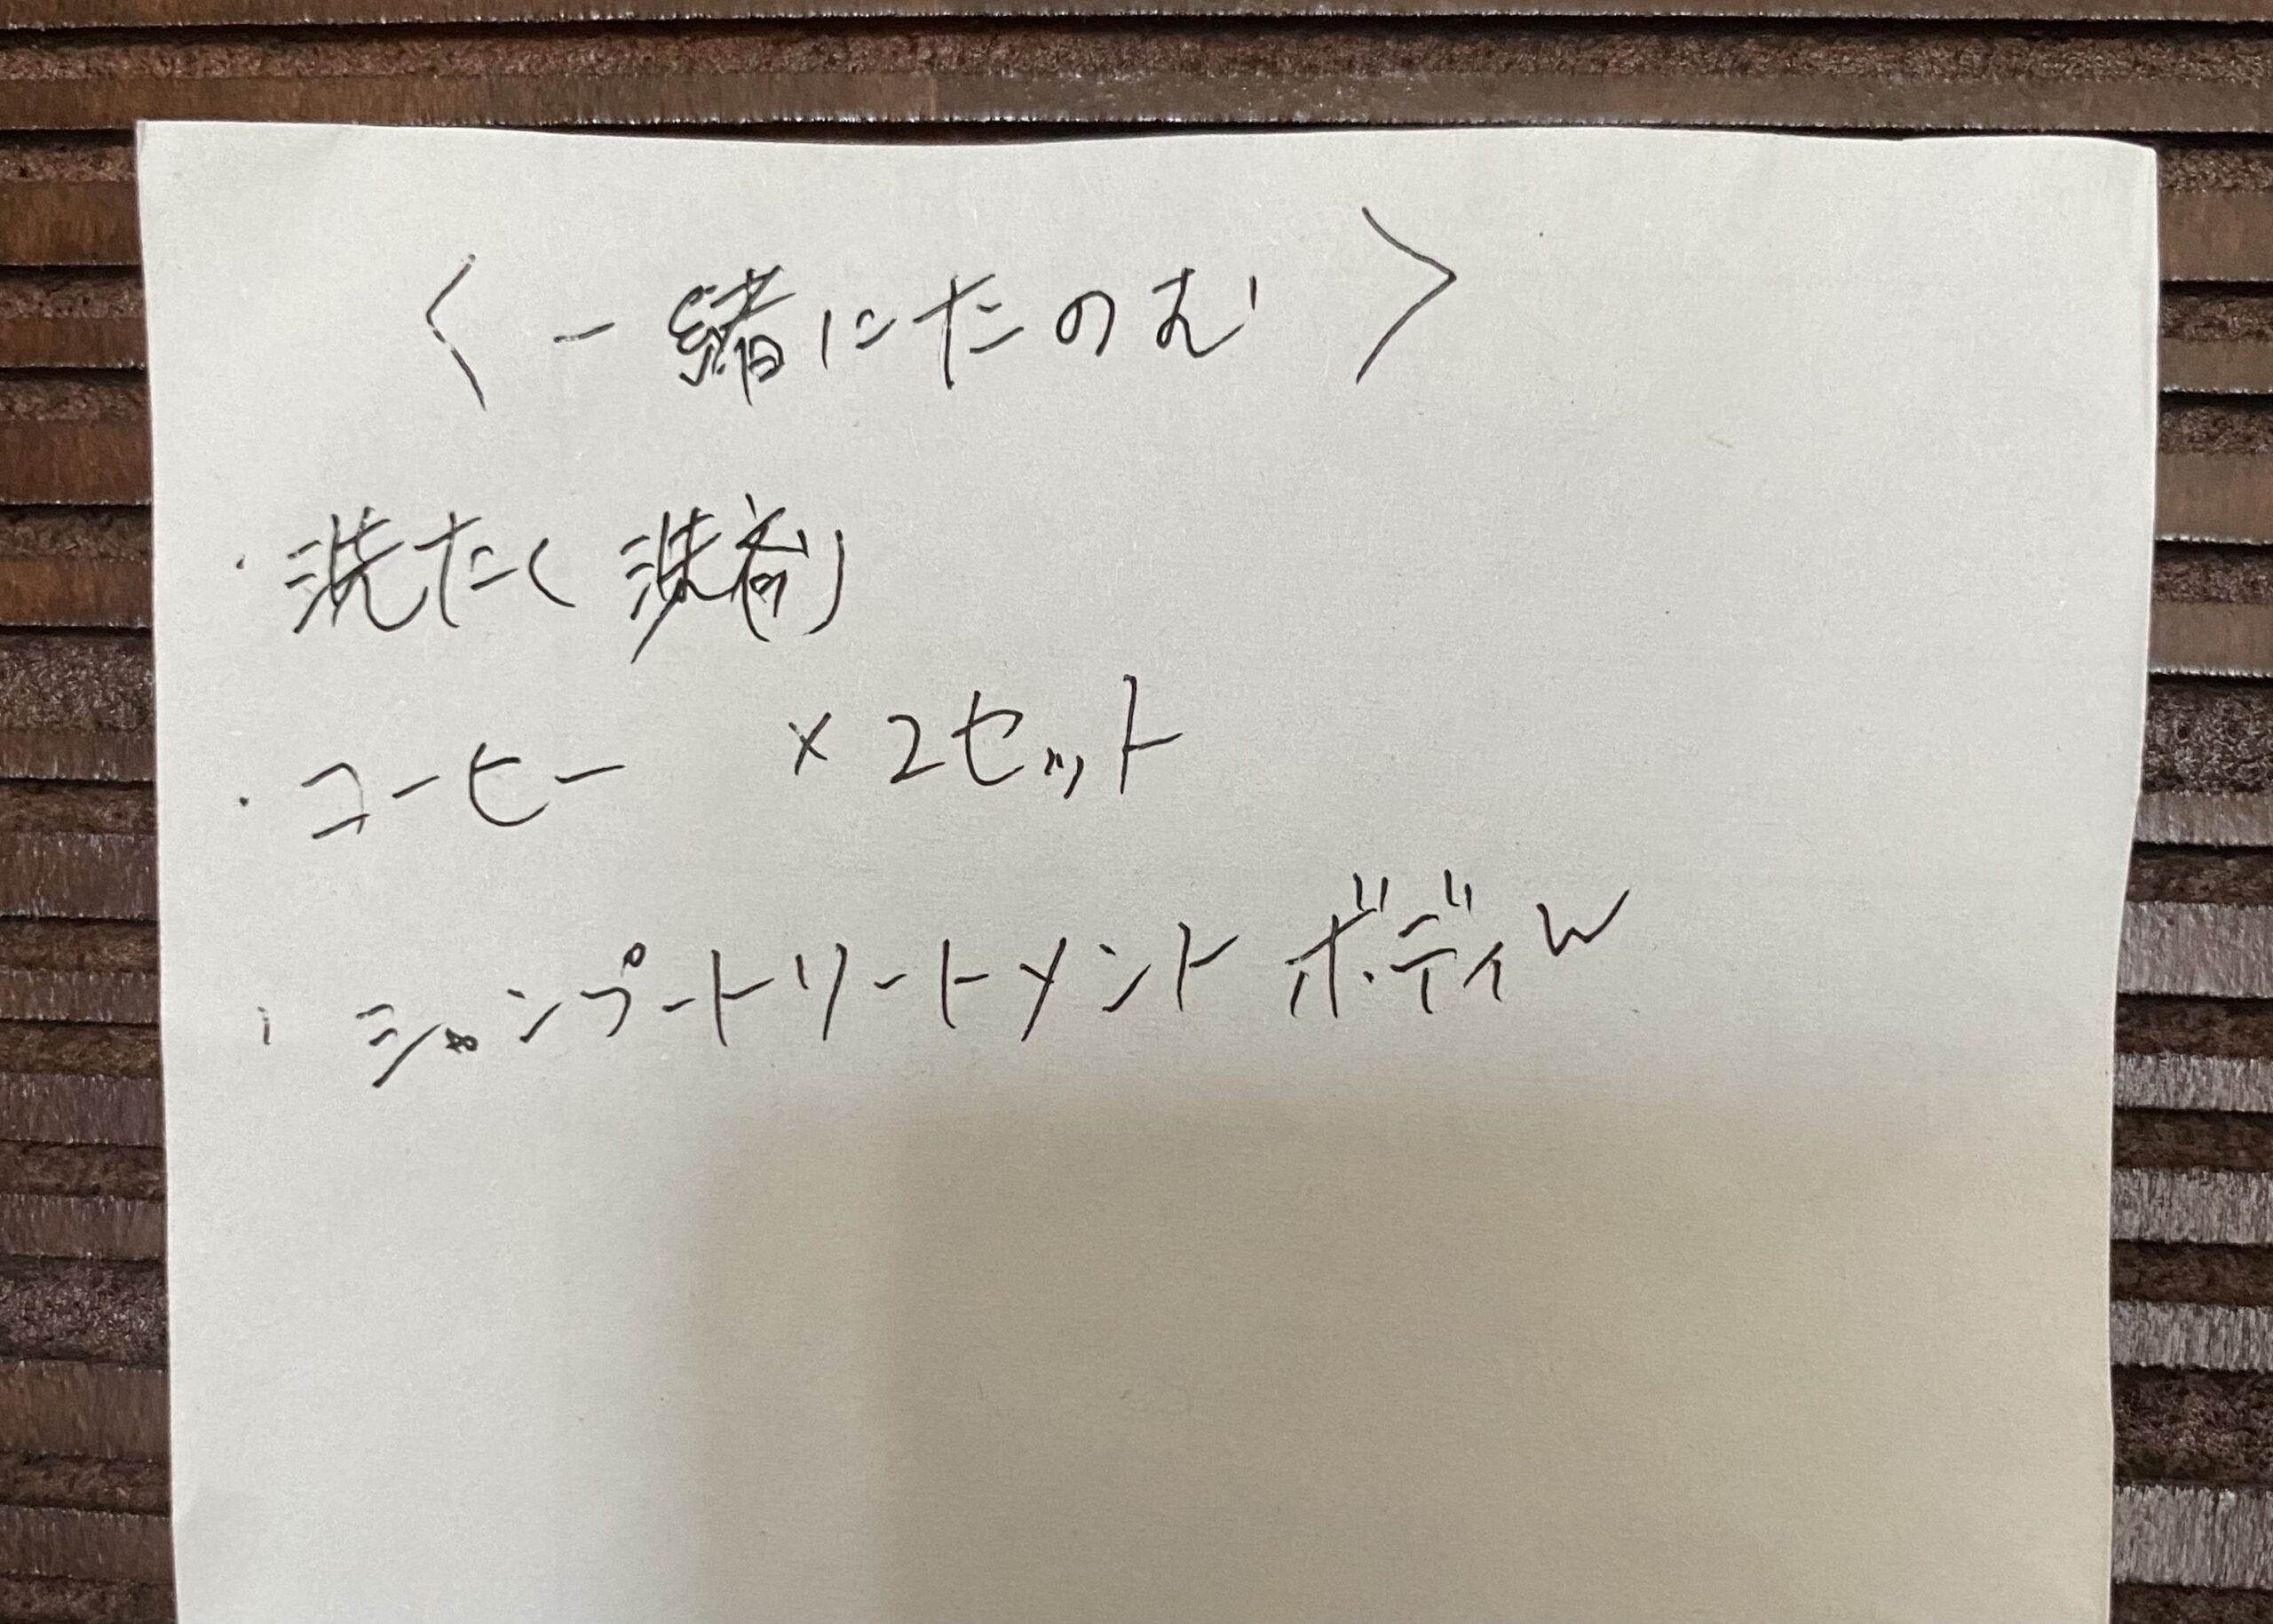 <一緒にたのむ>
・洗たく洗剤
・コーヒー ×2セット
・シャンプートリートメント ボディW